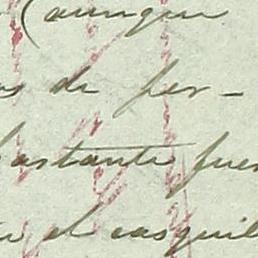 (aunque
de fer-
bastante fuer
el casquil